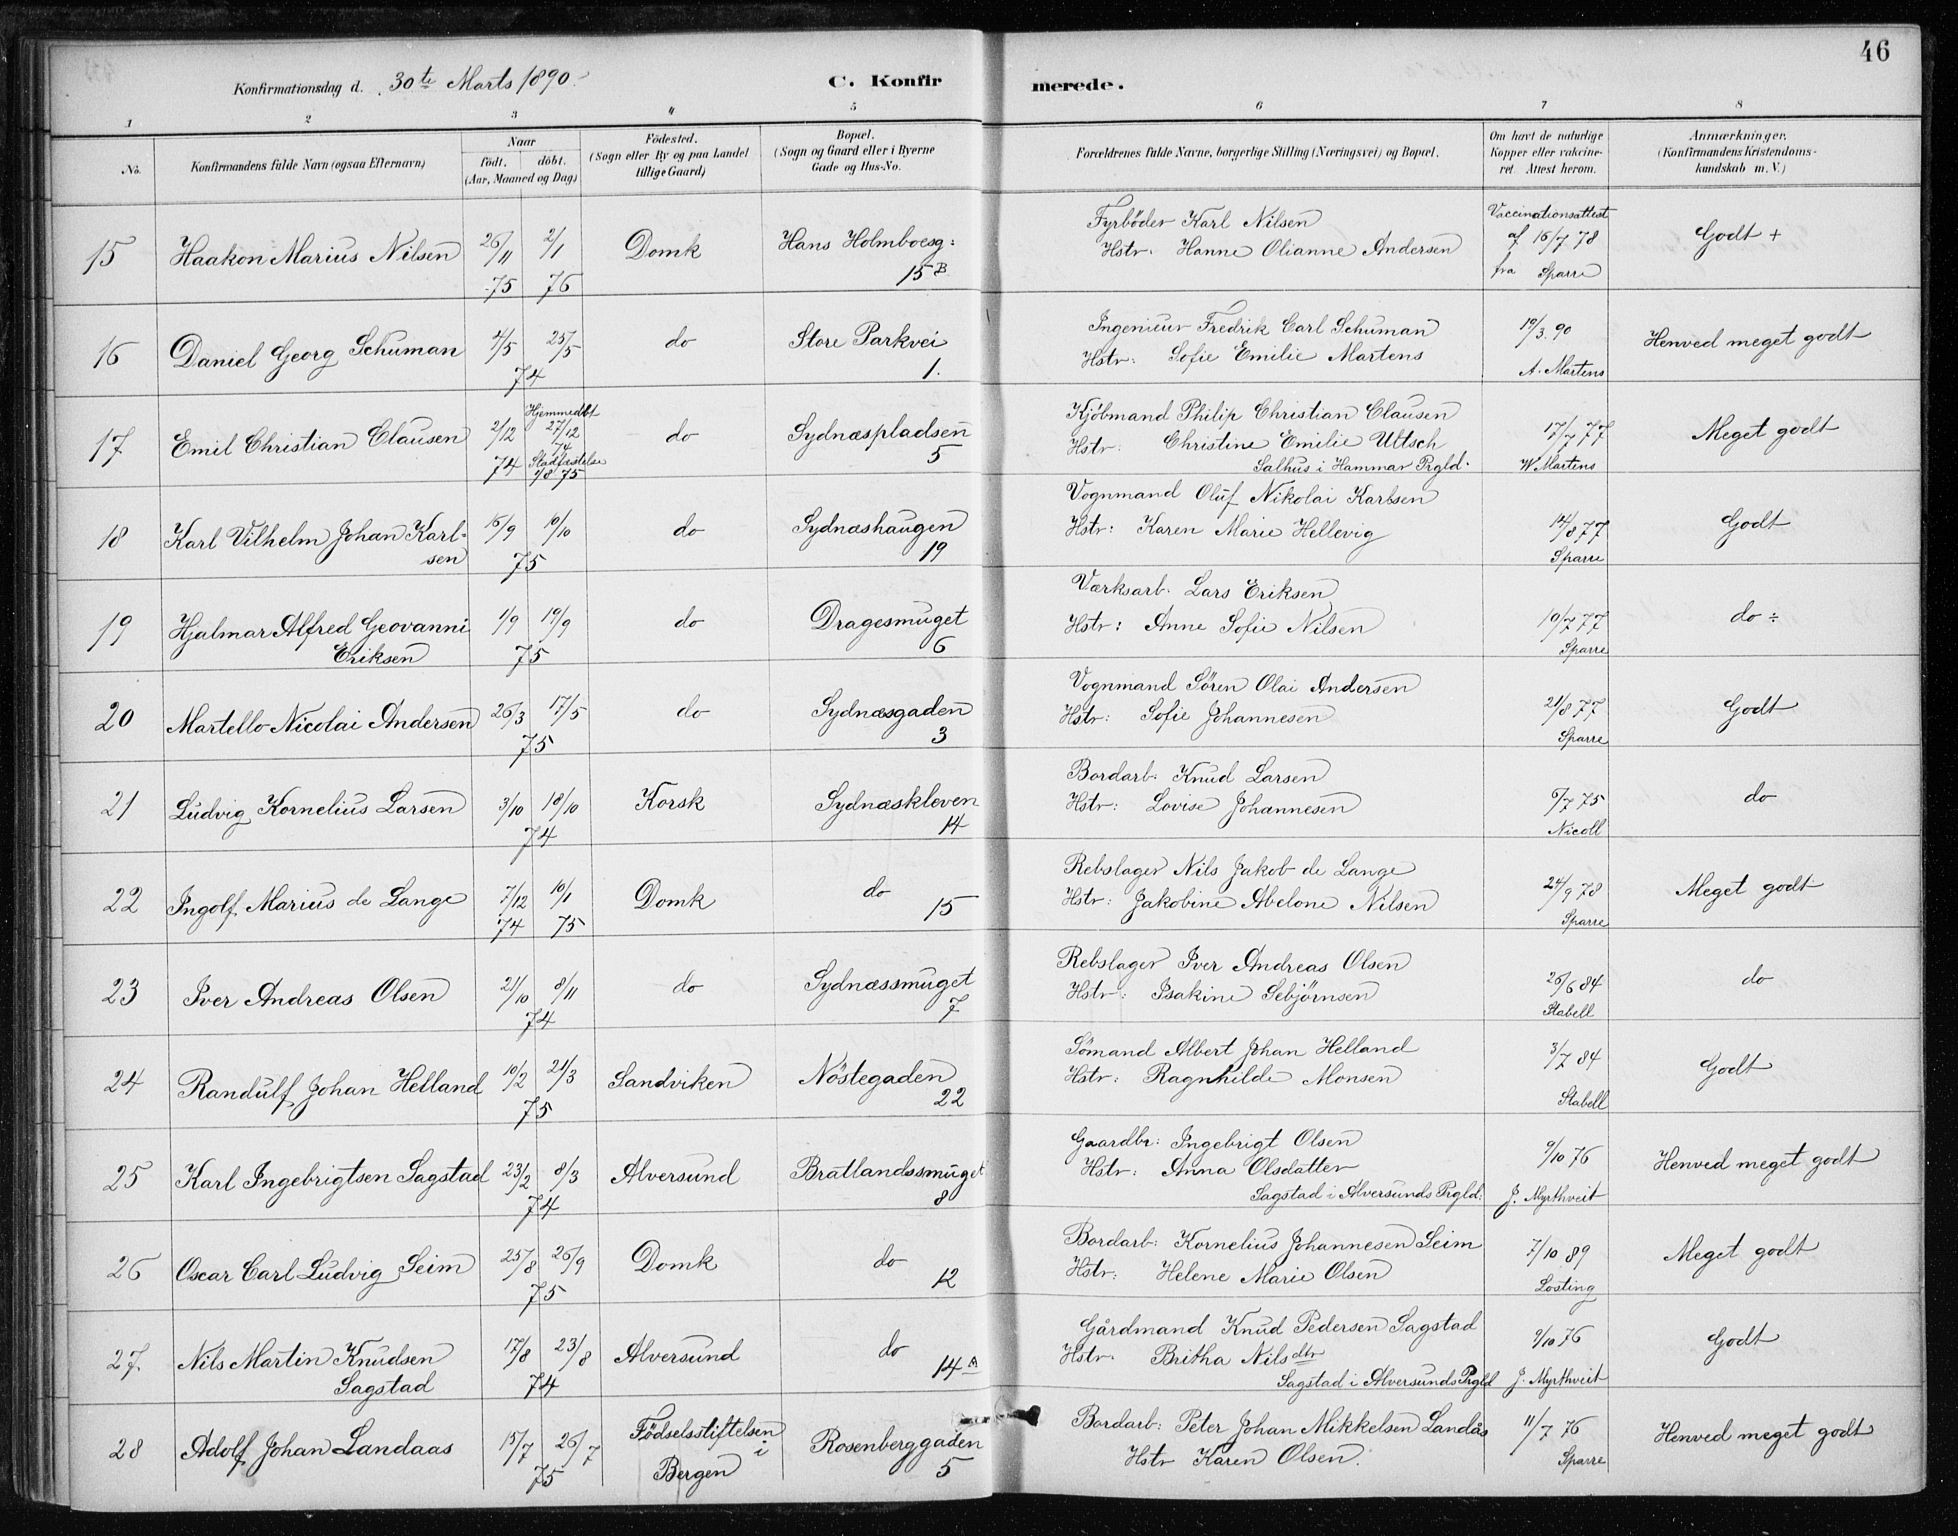 46
Konfirmationsdag d. 30te Marts 1890.
C. Konfirmerede.
1 2 3 4 5 6 7 8
No.
Konfirmandens fulde Navn (ogsaa Efternavn)
Naar
født. døbt.
(Aar, Maaned og Dag)
Fødested.
(Sogn eller By og paa Landet
tillige Gaard)
Bopæl.
(Sogn og Gaard eller i Byerne
Gade og Hus-No.
Forældrenes fulde Navne, borgerlige Stilling (Næringsvei) og Bopæl.
Om havt de naturlige
Kopper eller vakcine-
ret Attest herom.
Anmærkninger.
(Konfirmandens Kristendoms-
kundskab m. V.)
15 Haakon Marius Nilsen 26/11 75 2/1 76 Domk Hans Holmboesg: 15B
Fyrbøder Karl Nilsen
Hstr. Hanne Olianne Andersen
Vaccinationsattest
af 16/7 78
fra Sparre
Godt +
16 Daniel Georg Schuman 4/5 25/5 74 do Store Parkvei 1.
Ingenieur Fredrik Carl Schuman
Hstr: Sofie Emilie Martens
19/3. 90
A. Martens
Henved meget godt
17 Emil Christian Clausen 2/12 74 Hjemmedøbt 27/12 74 Stadfæstelse 1/8 75 do Sydnæspladsen 5
Kjøbmand Philip Christian Clausen
Hstr. Christine Emilie Ultsch
Salhus i Hammar Prgld.
17/7 77
W Martens
Meget godt
18 Karl Vilhelm Johan Karl-
sen 15/9 10/10 75 do Sydnæshaugen 19
Vognmand Oluf Nikolai Karlsen
Hstr: Karen Marie Hellevig
14/8 77
Sparre
Godt
19 Hjalmar Alfred Geovanni
Eriksen 1/9 19/9 75 do Dragesmuget 6
Værksarb. Lars Eriksen
Hstr: Anne Sofie Nilsen
10/7 77
Sparre
do ÷
20 Martello Nicolai Andersen 26/3 17/5 75 do Sydnæsgaden 3
Vognmand Søren Olai Andersen
Hstr: Sofie Johannesen
21/8 77
Sparre
Godt
21 Ludvig Kornelius Larsen 3/10 18/10 74 Korsk Sydnæskleven 14
Bordarb. Knud Larsen
Hstr: Lovise Johannesen
6/7 75
Nicoll
do
22 Ingolf Marius de Lange 7/12 74 10/1 75 Domk do 15
Rebslager Nils Jakob de Lange
Hstr: Jakobine Abelone Nilsen
24/9 78
Sparre
Meget godt
23 Iver Andreas Olsen 21/10 8/11 74 do Sydnæssmuget 7
Rebslager Iver Andreas Olsen
Hstr: Isakine Sebjørnsen
26/6 84
Stabell
do
24 Randulf Johan Helland 10/2 21/3 75 Sandviken Nøstegaden 22
Sømand Albert Johan Helland
Hstr: Ragnhilde Monsen
3/7 84
Stabell
Godt
25 Karl Ingebrigtsen Sagstad 23/2 8/3 74 Alversund Bratlandssmuget 8
Gaardbr: Ingebrigt Olsen
Hstr: Anna Olsdatter
Sagstad i Alversunds Prgld:
9/10 76
J. Myrthveit
Henved meget godt
26 Oscar Carl Ludvig Seim 25/8 26/9 75 Domk do 12
Bordarb: Kornelius Johannesen Seim
Hstr: Helene Marie Olsen
7/10 89
Losting
Meget godt
27. Nils Martin Knudsen
Sagstad 17/8 23/8 74 Alversund do 14A
Gårdmand Knud Pedersen Sagstad
Hstr. Britha Nilsdtr
Sagstad i Alversunds Prgld
9/10 76
J. Myrthveit
Godt
28 Adolf Johan Landaas 15/7 26/7 75 Fødselsstiftelsen i Bergen Rosenberggaden 5
Bordarb: Peter Johan Mikkelsen Landås
Hstr Karen Olsen.
11/7 76
Sparre
Henved meget godt